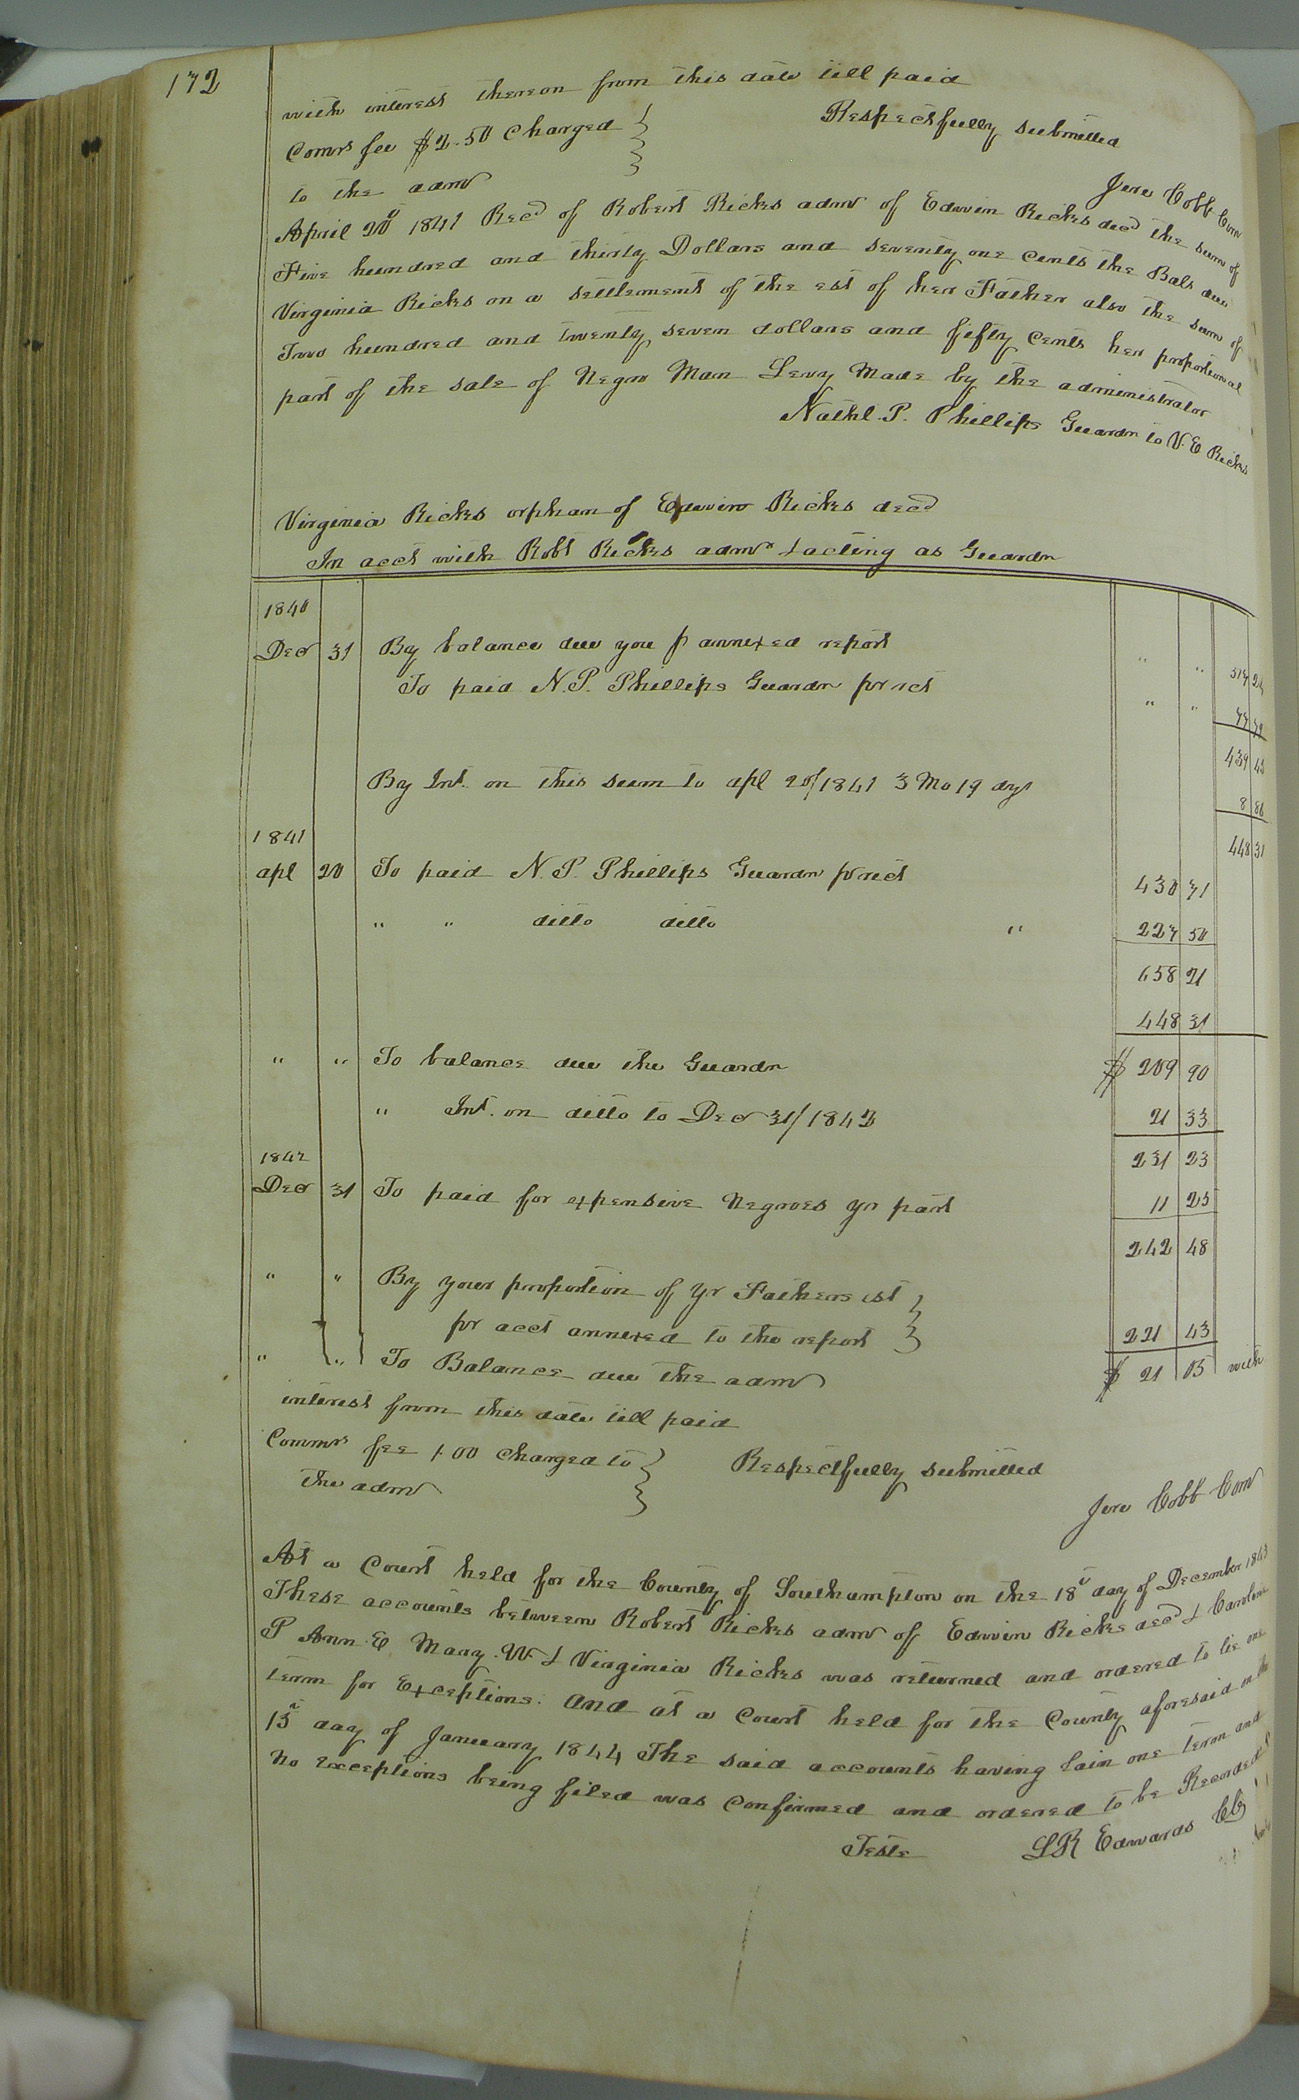 172
with interest thereon from this date till paid
Comrs fee $2.50 Charged } Respectfully submitted
to the admr Jere Cobb Comr
April 20th 1841 Recd of Robert Ricks admr of Edwin Ricks decd the sum of
Five hundred and thirty Dollars and seventy one cents the Bale due
Virginia Ricks on a settlement of the est of her Father also the sum of
Two hundred and twenty seven dollars and fifty Cents her proportional
part of the sale of Negro Man Levy Made by the administrator
Nathl. P. Phillips Guardn to V. E Ricks
Virginia Ricks orphan of Edwin Ricks decd
In acct with Robt Ricks admr & acting as Guardn
1840
Decr 31 By balance due you p annexed report " "
To paid N. P. Phillips Guardn pr rct " "
439
By Int. on this sum to apl 20/1841 3 Mo 19 dys 8
1841 448 31
apl 20 To paid N. P. Phillips Guardn pr rect 430 71
" " ditto ditto " 227 50
658 21
448 31
" " To balance due the Guardn $ 209 90
" Int. on ditto to Decr 31/1842 21 33
1842 231 23
Decr 31 To paid for expensive Negroes yr part 11 25
242 48
" " By your proportion of yr Fathers est }
pr acct annexed to the report } 221 43
" " To Balance due the admr $ 21 05 with
interest from this date till paid
Commrs fee 1.00 Charged to } Respectfully submitted
the admr Jere Cobb Comr
At a Court held for the County of Southampton on the 18th day of December 1843
These accounts between Robert Ricks admr of Edwin Ricks decd & Caroline
P Ann E Mary. W. & Virginia Ricks was returned and ordered to lie one
term for Exceptions. And at a Court held for the County aforesaid on the
15th day of January 1844 The said accounts having lain one term and
no exceptions being filed was Confirmed and ordered to be Recorded
Teste L R Edwards Clk